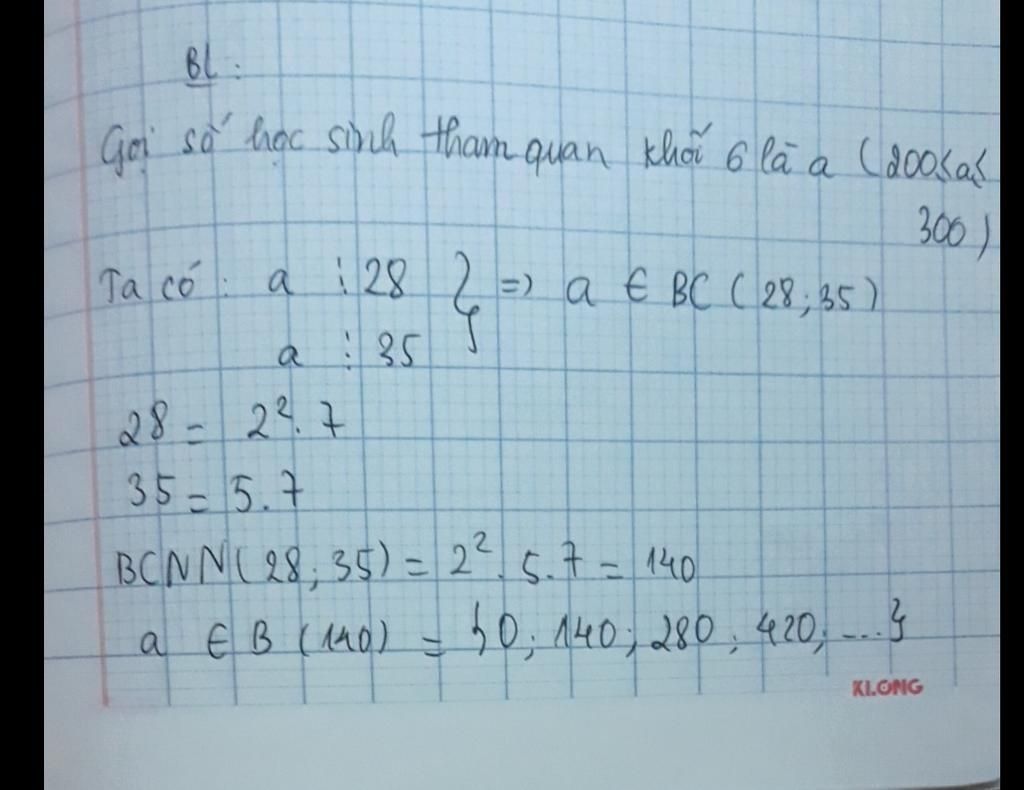 BL:
Gọi số học sinh tham quan khối 6 là a (200<a<
300)
Ta có: a ⋮ 28 } => a ∈ BC (28; 35)
a ⋮ 35
28 = 2². 7
35 = 5. 7
BCNN(28; 35) = 2². 5. 7 = 140
a ∈ B (140) = {0; 140; 280; 420; ...}
KLONG